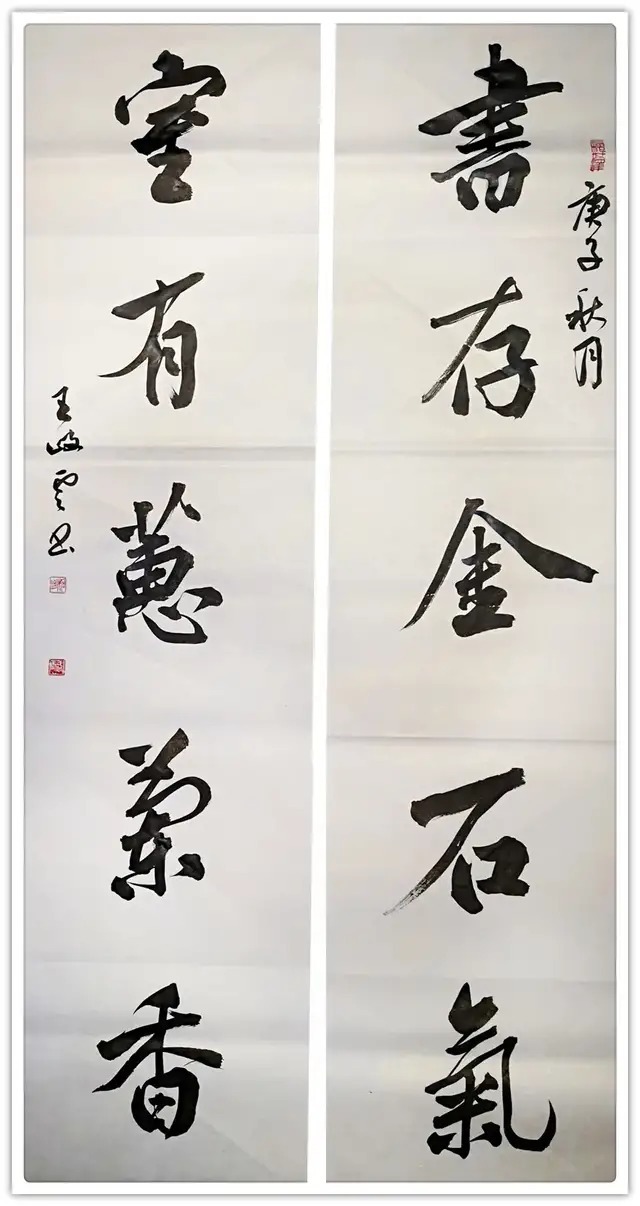 庚子秋月
書存金石氣
室有蕙蘭香
王岐雲书